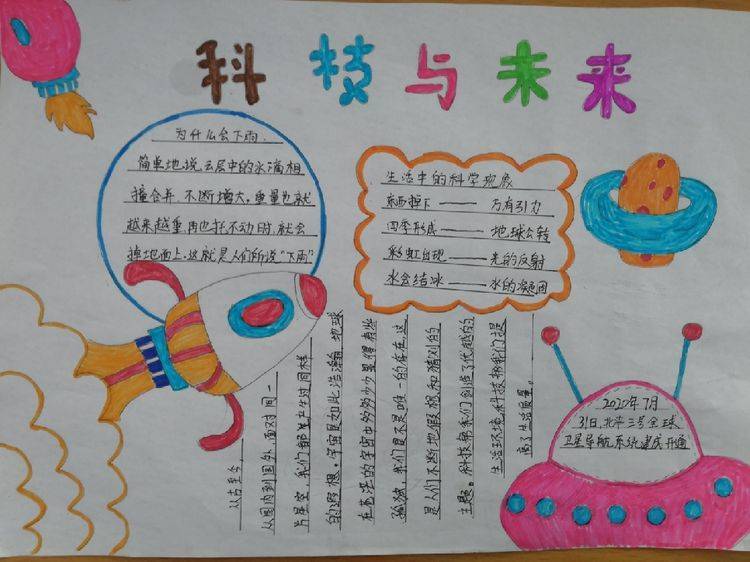 科技与未来
为什么会下雨
简单地说云层中的水滴相
撞合并,不断增大,重量也就
越来越重,再也托不动时,就会
掉地面上.这就是人们所说"下雨"
生活中的科学现象
东西掉下——万有引力
四季形成——地球公转
彩虹出现——光的反射
水会结冰——水的凝固
从古至今,
从国内到国外,面对同一
片星空,我们都产生过同样
的遐想。宇宙是如此浩瀚,地球
在茫茫的宇宙中
孤独,我们是不是唯一的存在,这
是人们不断地假想和猜对的
主题。科技帮我们创造了优越的
生活环境,科技帮我们提
高了生活质量。
2020年7月
31日,北斗三号全球
卫星导航系统建成开通